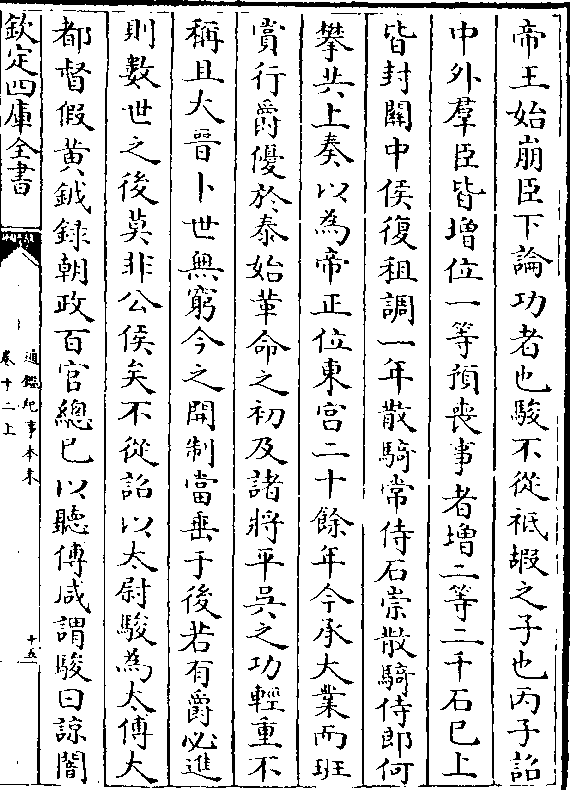 帝王始崩臣下論功者也駿不從祇嘏之子也丙子詔
中外羣臣皆增位一等預喪事者增二等二千石已上
皆封關中侯復租調一年散騎常侍石崇散騎侍郎何
攀共上奏以為帝正位東宮二十餘年今承大業而班
賞行爵優於泰始革命之初及諸將平吳之功輕重不
稱且大晉卜世無窮今之開制當垂于後若有爵必進
則數世之後莫非公侯矣不從詔以太尉駿為太傅大
都督假黃鉞錄朝政百官總已以聽傅咸謂駿曰諒闇
欽定四庫全書
通鑑紀事本末
卷十二上
十五